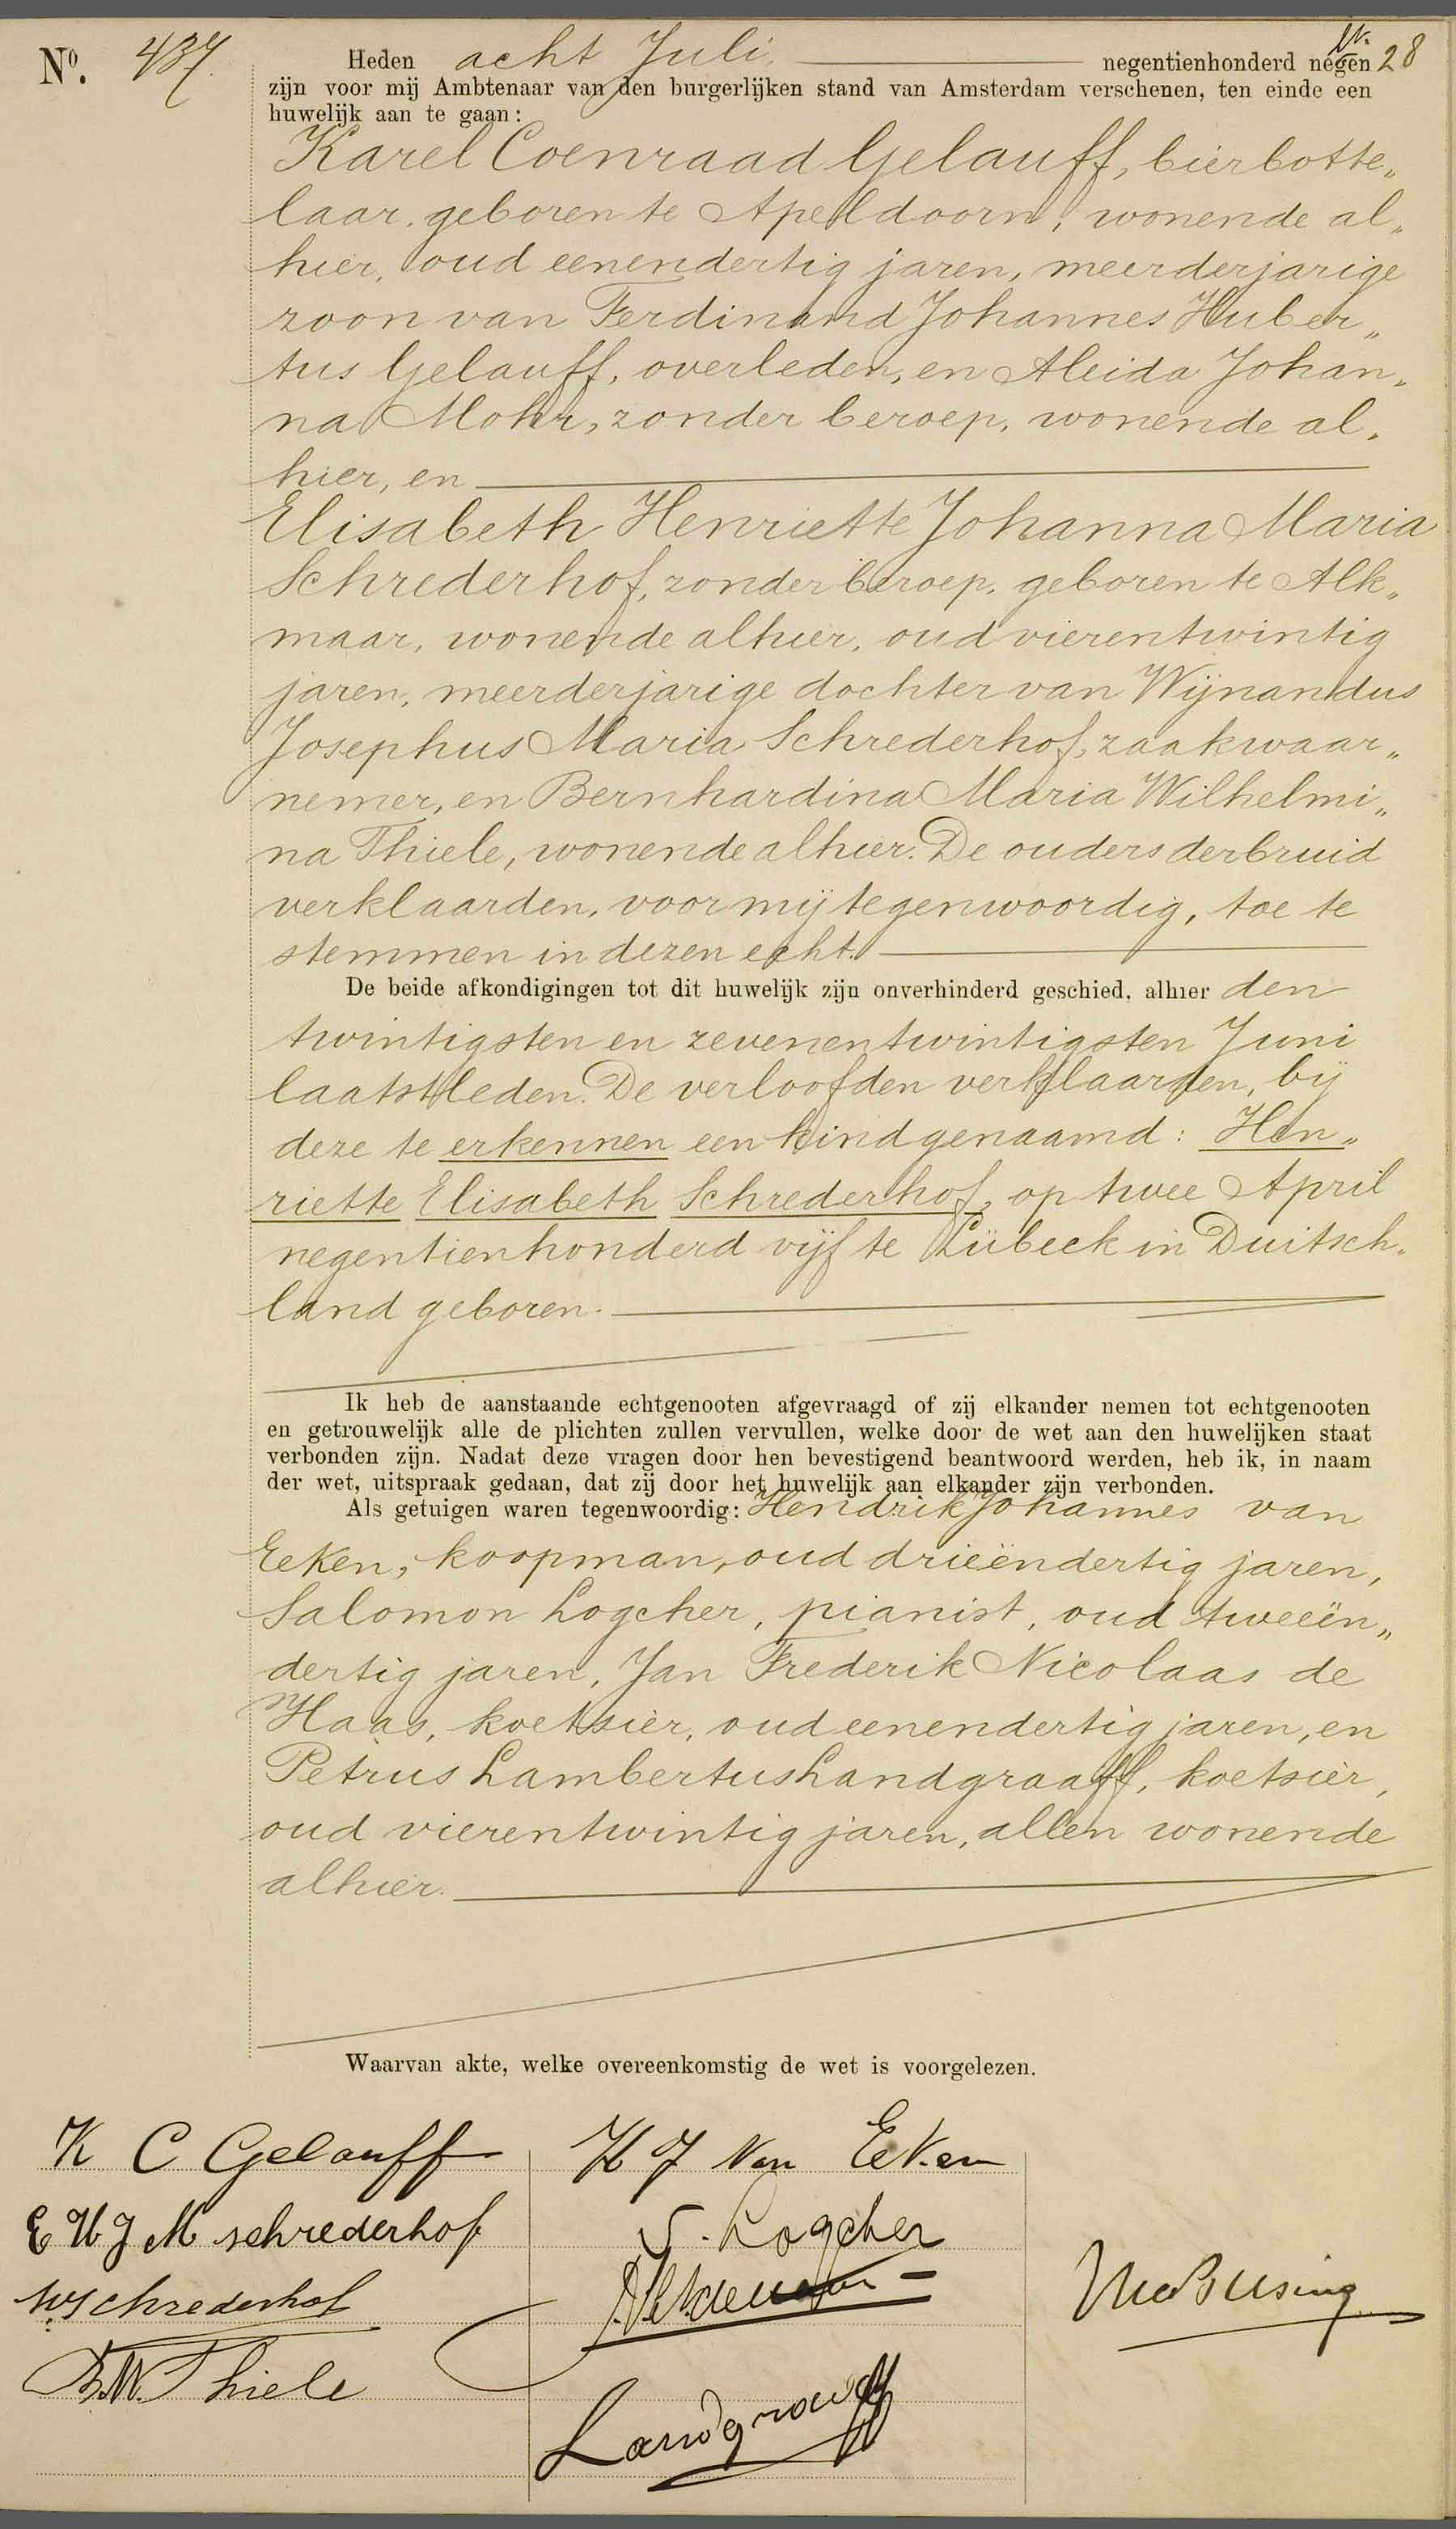 No. 437.
Heden acht Juli. negentienhonderd negen 28
zijn voor mij Ambtenaar van den burgerlijken stand van Amsterdam verschenen, ten einde een
huwelijk aan te gaan:
Karel Coenraad Gelauff, bierbotte„
laar, geboren te Apeldoorn, wonende al„
hier, oud eenendertig jaren, meerderjarige
zoon van Ferdinand Johannes Huber„
tus Gelauff, overleden, en Aleida Johan„
na Mohr, zonder beroep, wonende al„
hier, en
Elisabeth Henriette Johanna Maria
Schrederhof, zonder beroep, geboren te Alk„
maar, wonende alhier, oud vierentwintig
jaren, meerderjarige dochter van Wijnandus
Josephus Maria Schrederhof, zaakwaar„
nemer, en Bernhardina Maria Wilhelmi„
na Thiele, wonende alhier. De ouders der bruid
verklaarden, voor mij tegenwoordig, toe te
stemmen in dezen echt.
De beide afkondigingen tot dit huwelijk zijn onverhinderd geschied, alhier den
twintigsten en zevenentwintigsten Juni
laatstleden. De verloofden verklaarden, bij
deze te erkennen een kind genaamd: Hen„
riette Elisabeth Schrederhof, op twee April
negentienhonderd vijf te Lübeck in Duitsch„
land geboren.
Ik heb de aanstaande echtgenooten afgevraagd of zij elkander nemen tot echtgenooten
en getrouwelijk alle de plichten zullen vervullen, welke door de wet aan den huwelijken staat
verbonden zijn. Nadat deze vragen door hen bevestigend beantwoord werden, heb ik, in naam
der wet, uitspraak gedaan, dat zij door het huwelijk aan elkander zijn verbonden.
Als getuigen waren tegenwoordig: Hendrik Johannes van
Eeken, koopman, oud drieëndertig jaren,
Salomon Logcher, pianist, oud tweeën„
dertig jaren, Jan Frederik Nicolaas de
Haas, koetsier, oud eenendertig jaren, en
Petrus Lambertus Landgraaff, koetsier,
oud vierentwintig jaren, allen wonende
alhier.
Waarvan akte, welke overeenkomstig de wet is voorgelezen.
K C Gelauff
E H J M schrederhof
WSchrederhof
B.W. Thiele
H J Van Eeken
S. Logcher
Landgraaff